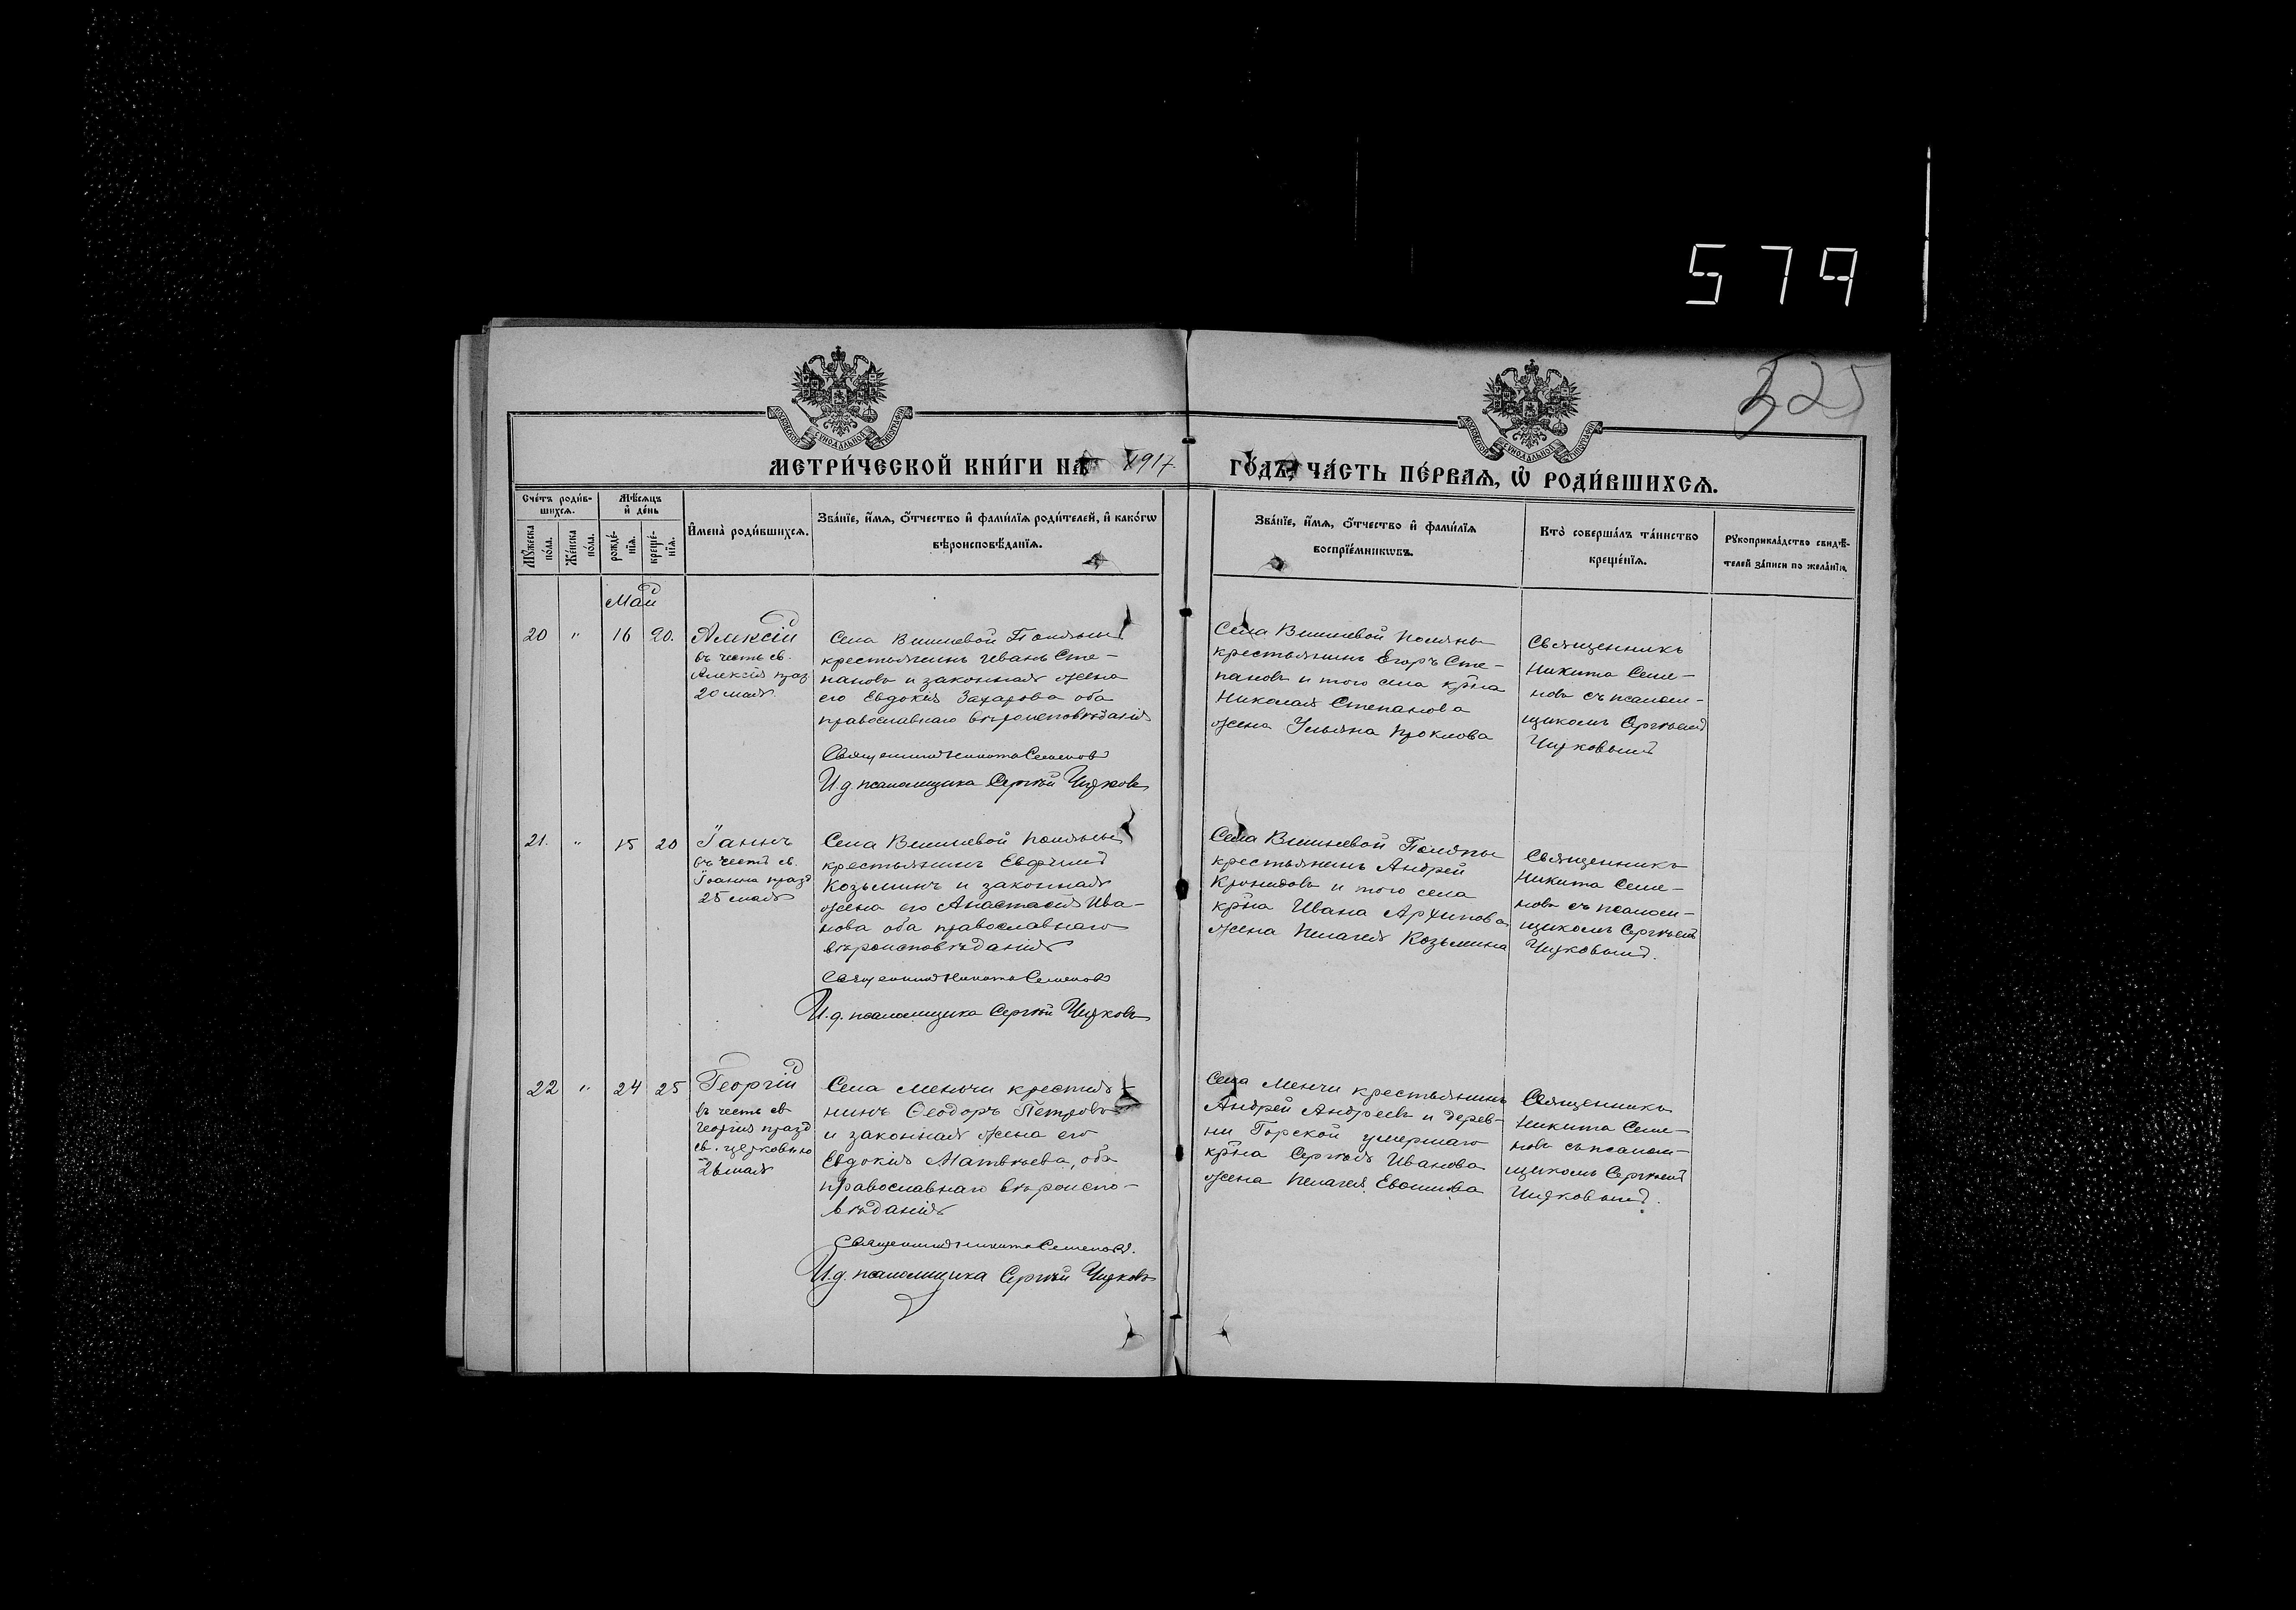 579
325
МОСКОВСКОЙ СѴНОДАЛЬНОЙ ТИПОГРАФІИ
МОСКОВСКОЙ СѴНОДАЛЬНОЙ ТИПОГРАФІИ
МЕТРИ́ЧЕСКОЙ КНИ́ГИ НА 1917 ГО́ДЪ, ЧА́СТЬ ПЕ́РВАѦ, Ѡ҆ РОДИ́ВШИХСѦ.
Сче́тъ роди́в-
шихсѧ.
Мѣ́сѧцъ
и҆ де́нь
Мꙋ́жеска
по́ла.
Же́нска
по́ла.
рожде́-
нїѧ.
креще́-
нїѧ.
И҆мена̀ роди́вшихсѧ.
Зва́нїе, и҆́мѧ, ѻ҆́тчество и҆ фами́лїѧ роди́телей, и҆ како́гѡ
вѣроисповѣ́данїѧ.
Зва́нїе, и҆́мѧ, ѻ҆́тчество и҆ фами́лїѧ
воспрїе́мникѡвъ.
Кто̀ соверша́лъ та́инство
креще́нїѧ.
Рꙋкоприкла́дство свидѣ́-
телей за́писи по жела́нїю.
Май
20 " 16 20.
Алексій
въ честь св.
Алексія праз
20 мая
Села Вишневой Поляны
крестьянинъ Иванъ Сте-
пановъ и законная жена
его Евдокія Захарова оба
православнаго вѣроисповѣданія
Священникъ Никита Семеновъ
И.д. псаломщика Сергѣй Чирковъ
Села Вишневой Поляны
крестьянинъ Егоръ Сте-
пановъ и того села кр̃на
Николая Степанова
жена Ульяна Проклова
Священникъ
Никита Семе-
новъ съ псалом-
щикомъ Сергѣемъ
Чирковымъ
21. " 15 20
Іаннъ
въ честь св.
Іоанна празд
25 мая
Села Вишневой Поляны
крестьянинъ Евфимій
Козьминъ и законная
жена его Анастасія Ива-
нова оба православнаго
вѣроисповѣданія
Священникъ Никита Семеновъ
И.д. псаломщика Сергѣй Чирковъ
Села Вишневой Поляны
крестьянинъ Андрей
Кронидовъ и того села
кр̃на Ивана Архипова
жена Пелагея Козьмина
Священникъ
Никита Семе-
новъ съ псалом-
щикомъ Сергѣемъ
Чирковымъ.
22 " 24 25
Георгій
въ честь св
Георгія празд
св. церковью
26 мая
Села Менчи крестья-
нинъ Ѳеодоръ Петровъ
и законная жена его
Евдокія Матвѣева, оба
православнаго вѣроиспо-
вѣданія
Священникъ Никита Семеновъ.
И.д. псаломщика Сергѣй Чирковъ
Села Менчи крестьянинъ
Андрей Андреевъ и дерев-
ни Горской умершаго
кр̃на Сергѣя Иванова
жена Пелагея
Священникъ
Никита Семе-
новъ съ псалом-
щикомъ Сергѣемъ
Чирковымъ.